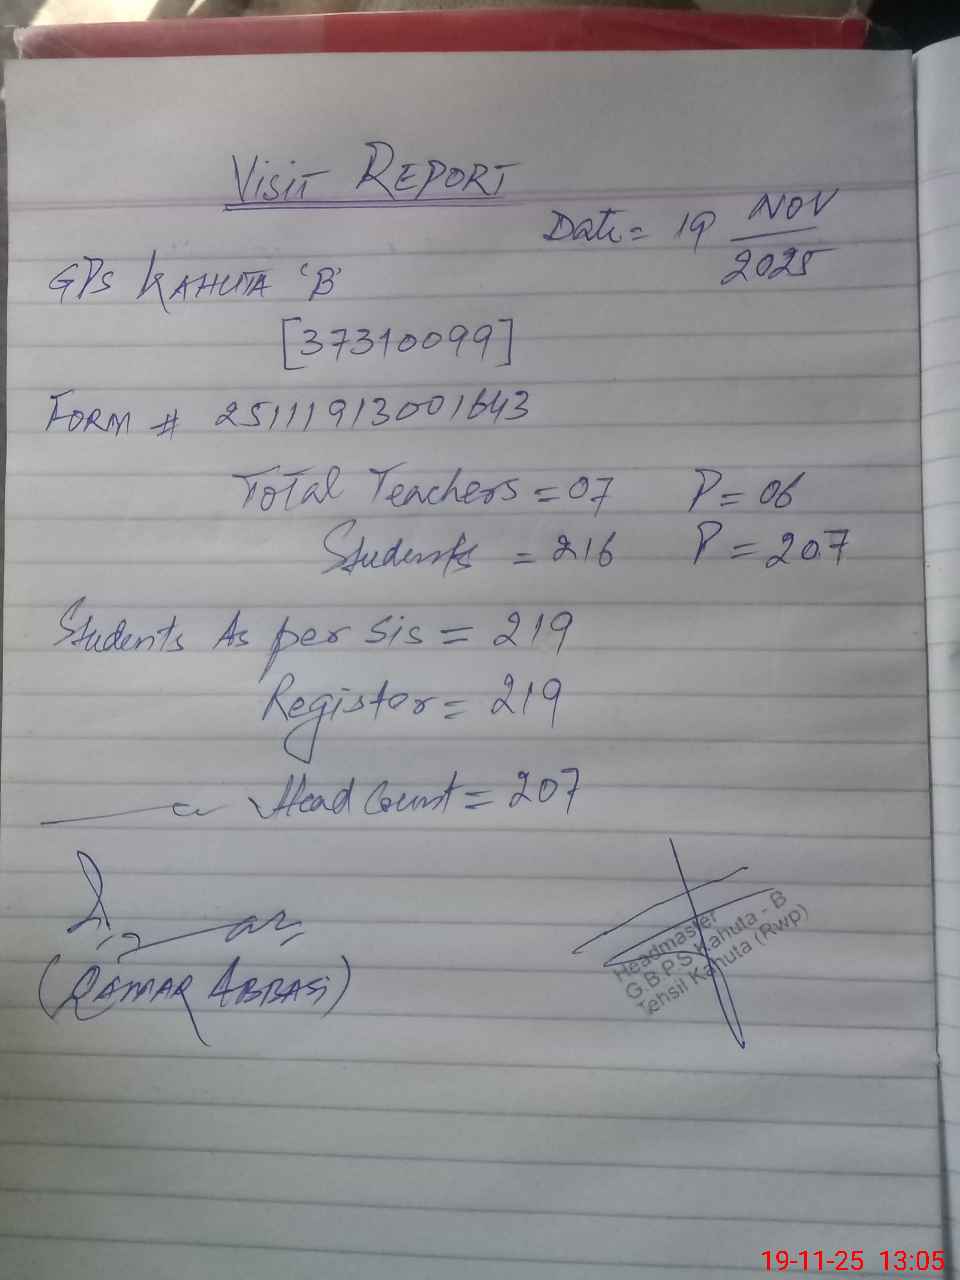 VISIT REPORT
Date = 19 NOV
2025
GPS KAHUTA 'B'
[37310099]
FORM # 25111913001643
Total Teachers = 07 P = 06
Students = 216 P = 207
Students As per SiS = 219
Registor = 219
Head Count = 207
(QAMAR ABBASi)
Headmaster
G.B.P.S Kahuta - B
Tehsil Kahuta (Rwp)
19-11-25 13:05